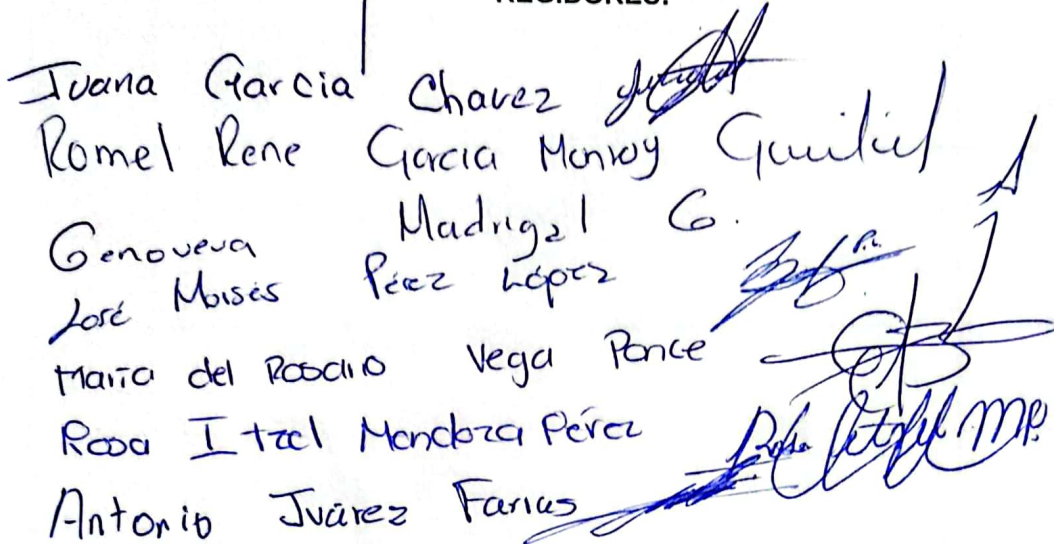 REGIDORES:
Juana Garcia Chavez
Romel Rene Garcia Monroy
Genoveva Madrigal G.
José Moisés Pérez López
María del Rosario Vega Ponce
Rosa Itzel Mendoza Pérez
Antonio Juárez Farias